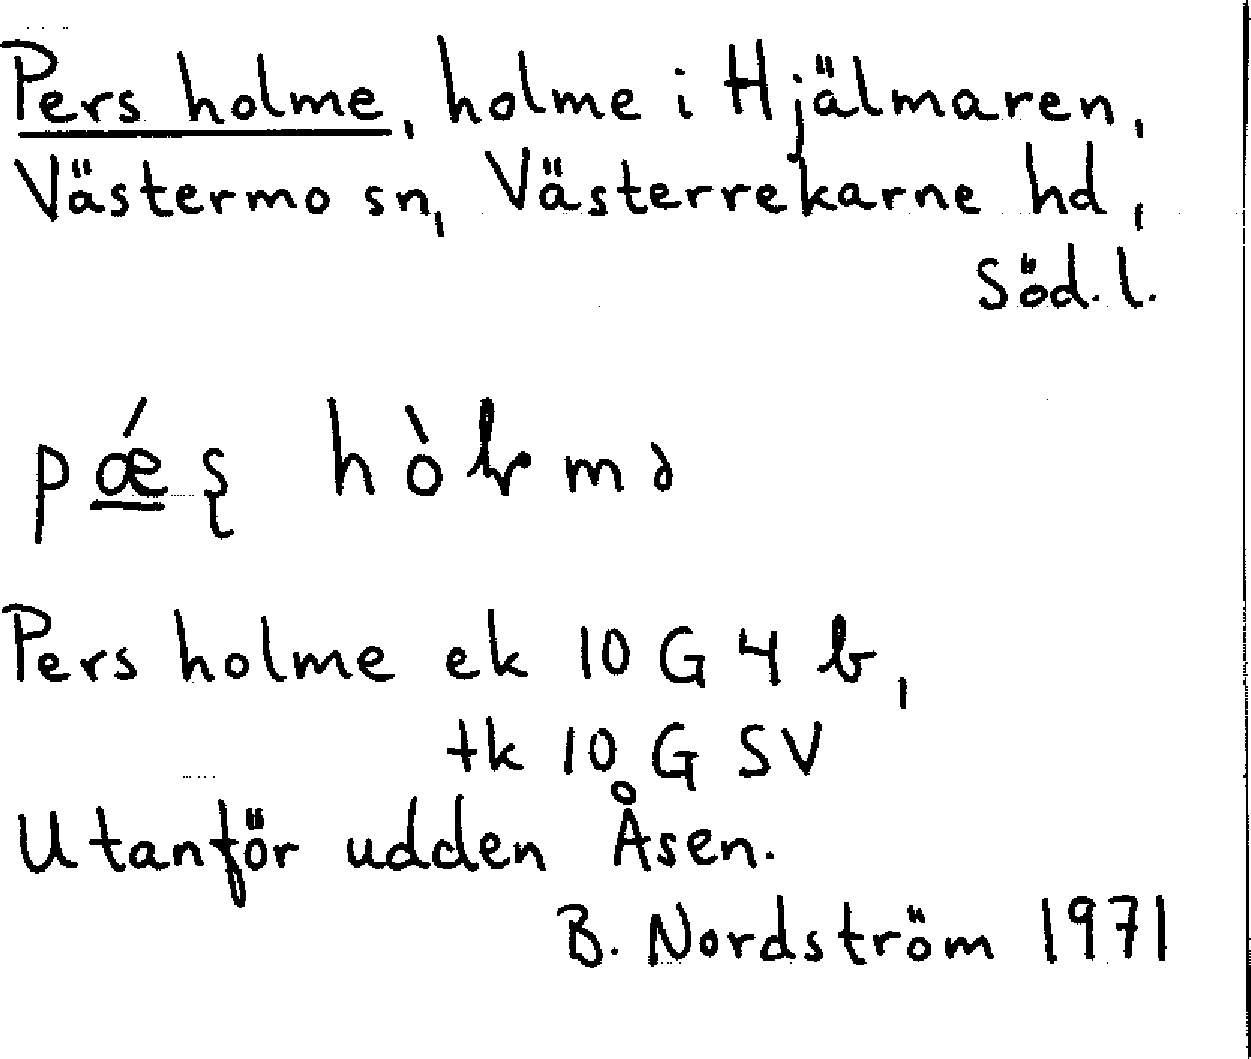 Pers holme, holme i Hjälmaren,
Västermo sn, Västerrekarne hd,
Söd. l.
pǽʂ hòɫmə
Pers holme ek 10 G 4 b,
tk 10 G SV
Utanför udden Åsen.
B. Nordström 1971